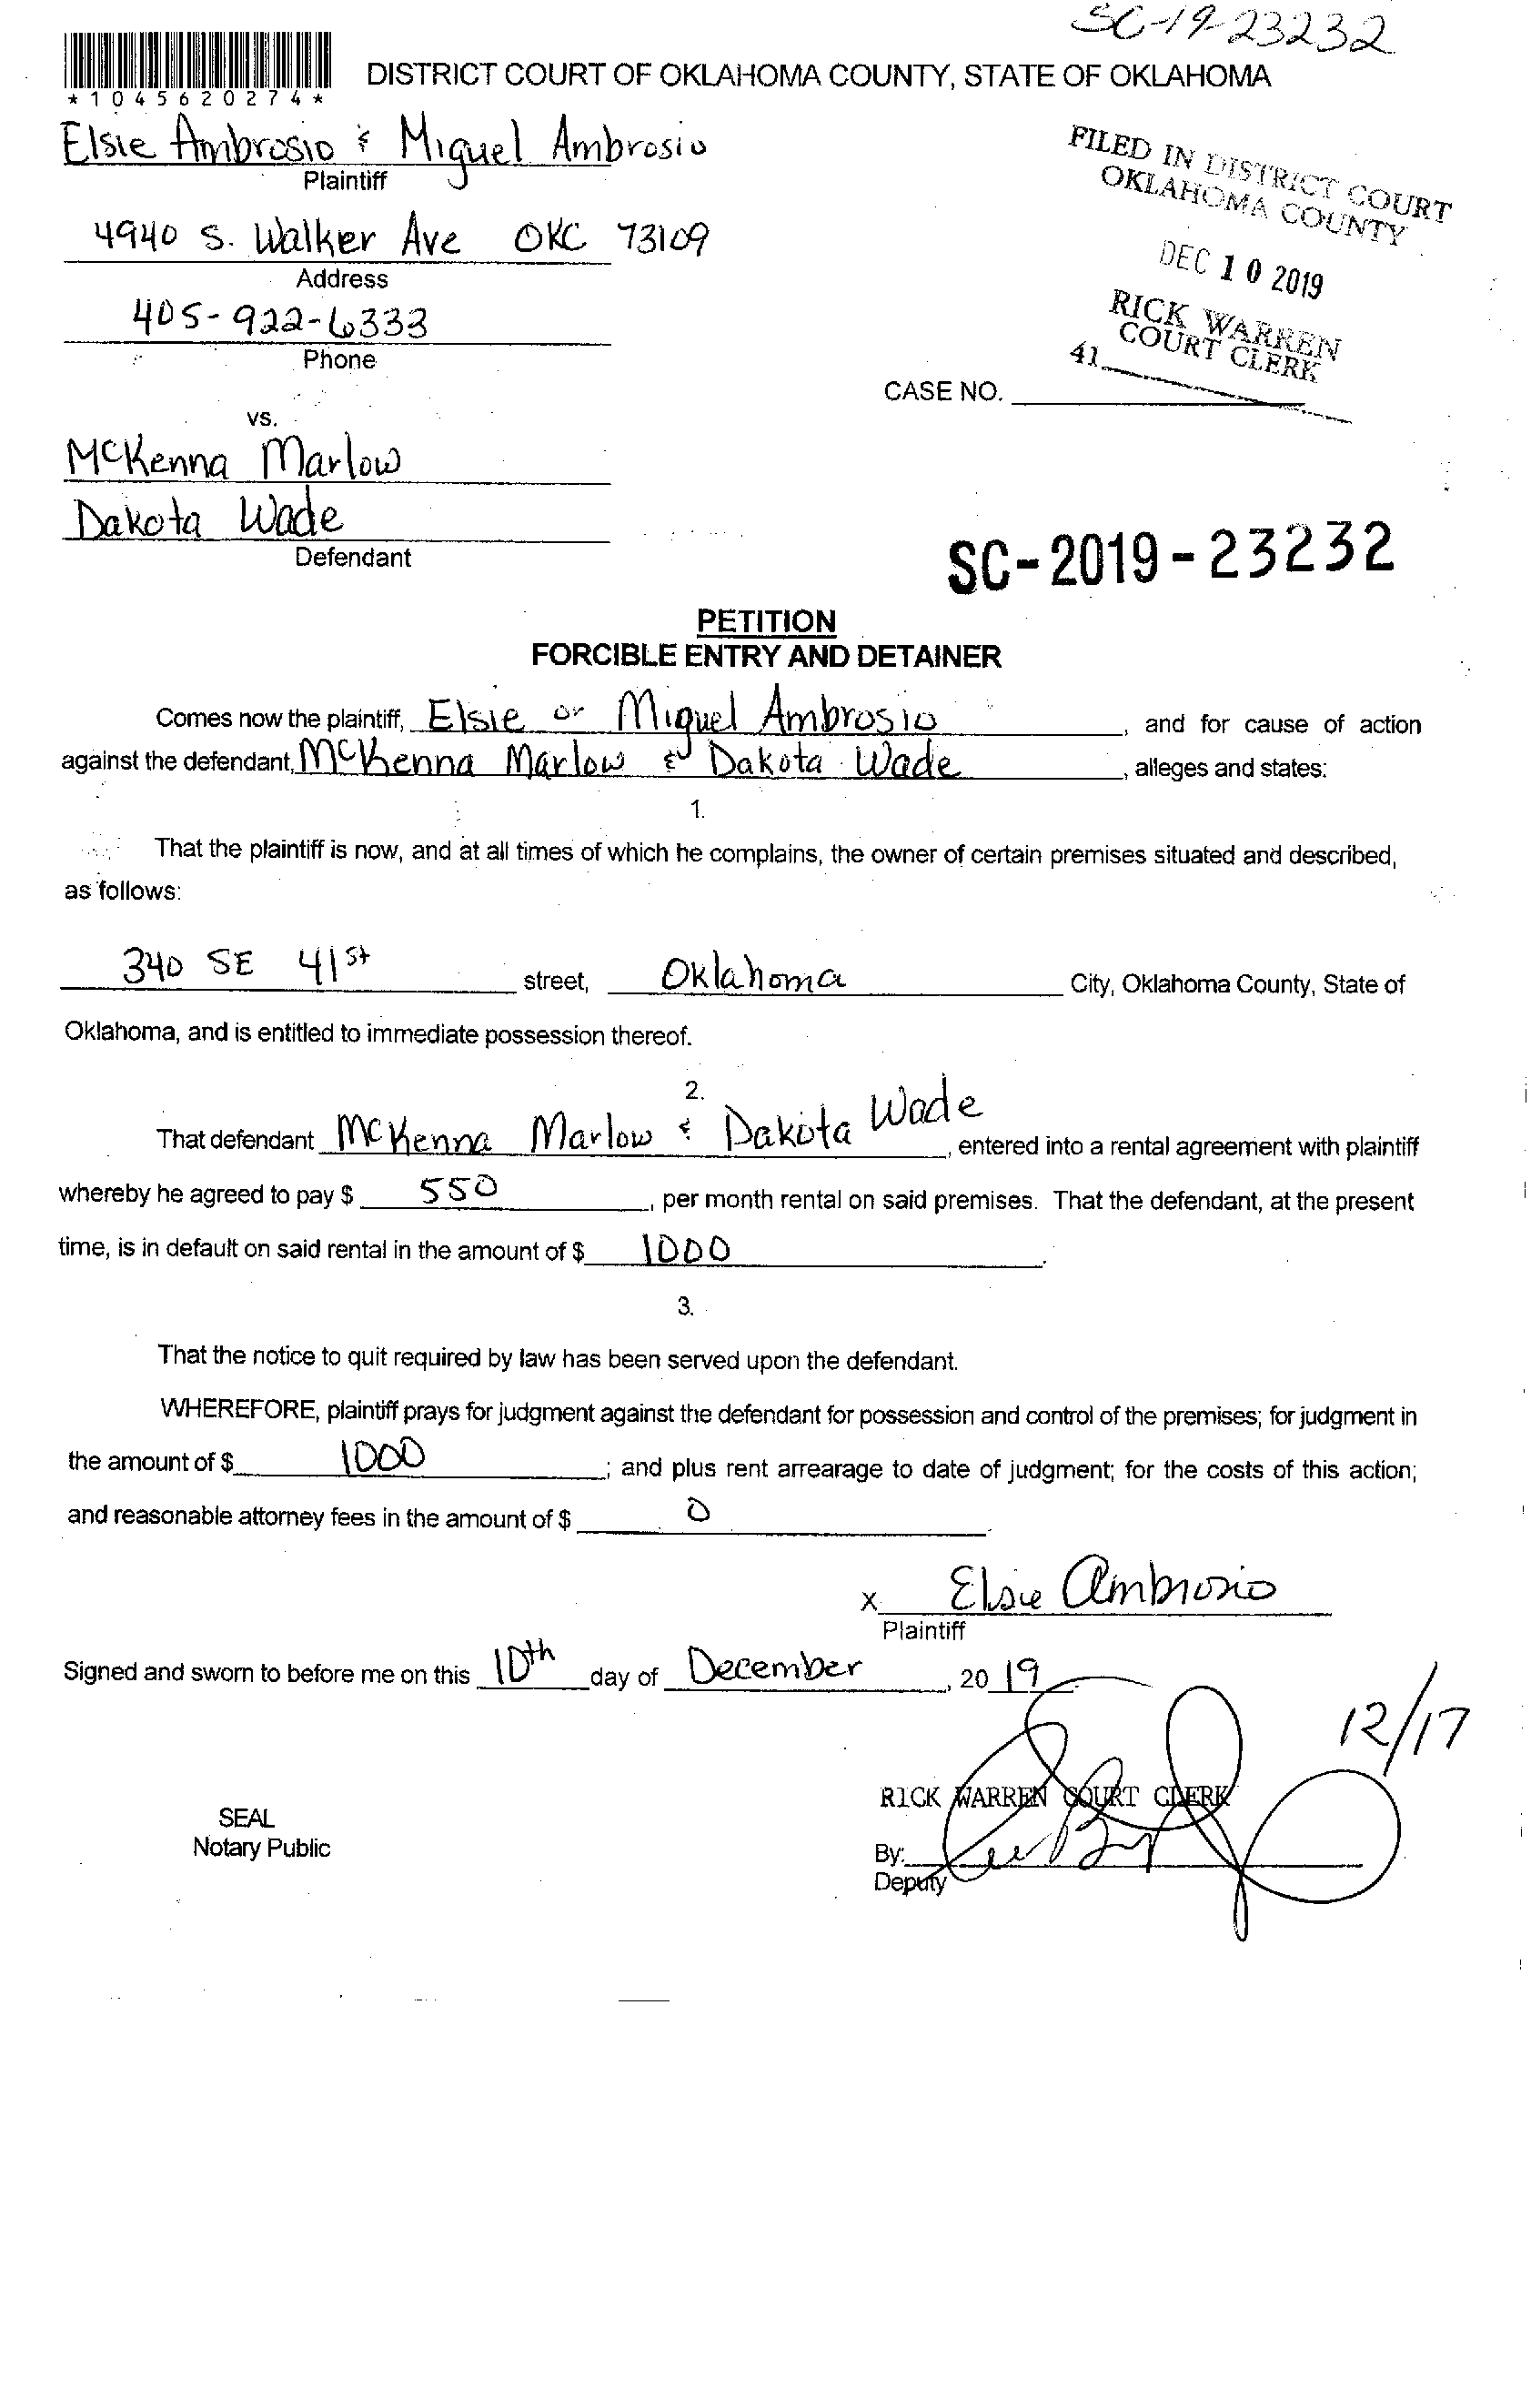 SC-19-23232
*1045620274*
DISTRICT COURT OF OKLAHOMA COUNTY, STATE OF OKLAHOMA
Elsie Ambrosio & Miguel Ambrosio
Plaintiff
4940 S. Walker Ave OKC 73109
Address
405-922-6333
Phone
FILED IN DISTRICT COURT
OKLAHOMA COUNTY
DEC 10 2019
RICK WARREN
COURT CLERK
41
CASE NO.
vs.
McKenna Marlow
Dakota Wade
Defendant
SC-2019-23232
PETITION
FORCIBLE ENTRY AND DETAINER
Comes now the plaintiff, Elsie or Miguel Ambrosio, and for cause of action
against the defendant, McKenna Marlow & Dakota Wade, alleges and states:
1.
That the plaintiff is now, and at all times of which he complains, the owner of certain premises situated and described,
as follows:
340 SE 41st street, Oklahoma City, Oklahoma County, State of
Oklahoma, and is entitled to immediate possession thereof.
2.
That defendant McKenna Marlow & Dakota Wade, entered into a rental agreement with plaintiff
whereby he agreed to pay $ 550, per month rental on said premises. That the defendant, at the present
time, is in default on said rental in the amount of $ 1000.
3.
That the notice to quit required by law has been served upon the defendant.
WHEREFORE, plaintiff prays for judgment against the defendant for possession and control of the premises; for judgment in
the amount of $ 1000; and plus rent arrearage to date of judgment; for the costs of this action;
and reasonable attorney fees in the amount of $ 0.
x Elsie Ambrosio
Plaintiff
Signed and sworn to before me on this 10th day of December, 2019.
12/17
RICK WARREN COURT CLERK
SEAL
Notary Public
By:
Deputy